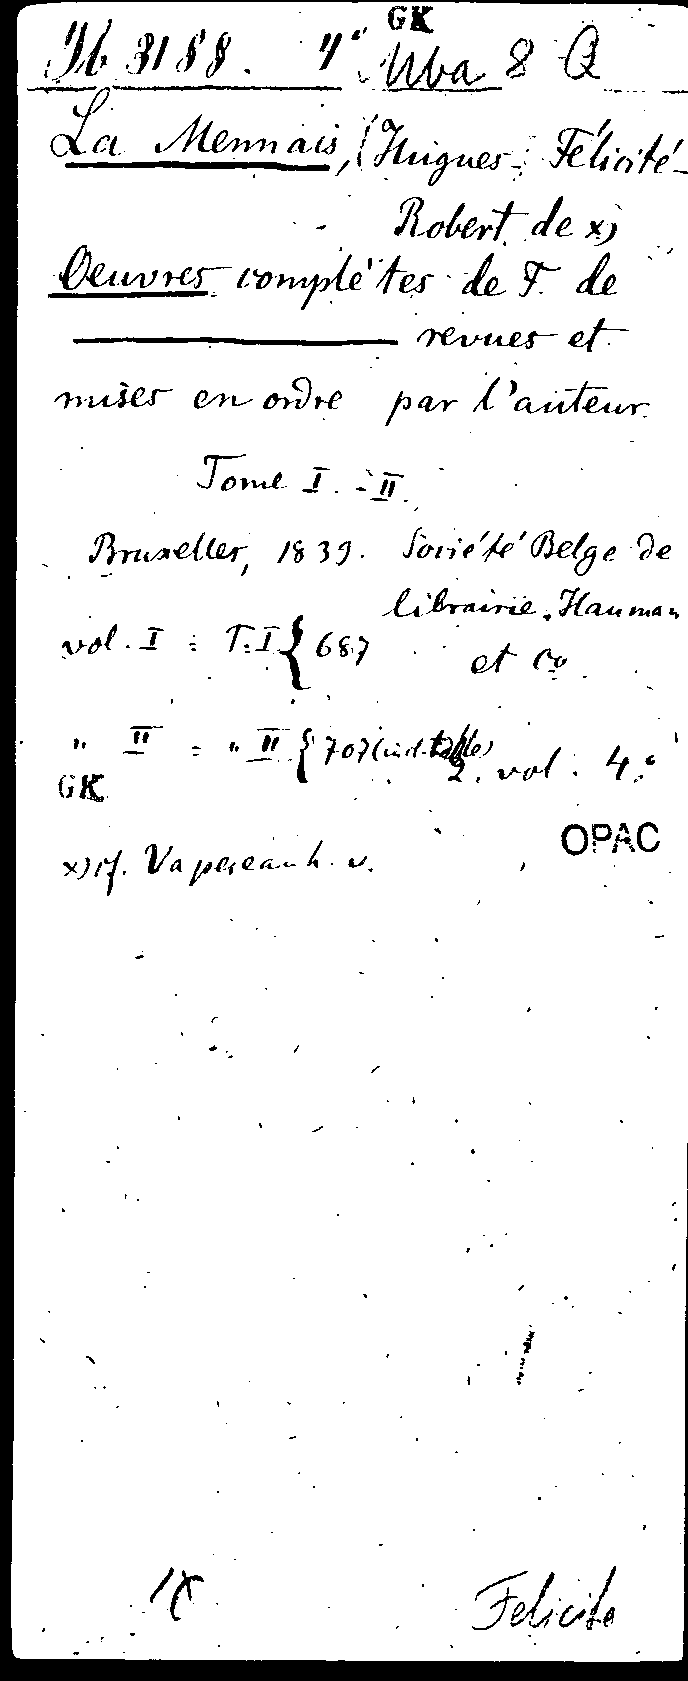 GK
Yb 3188. 4° Uba 8 Q
La Mennais, (Hugues-Félicité-
Robert de x)
Oeuvres complètes de F. de
——— revues et
mises en ordre par l'auteur.
Tome I. - II.
Bruxelles, 1839. Société Belge de
librairie. Hauman
et Co.
vol. I = T. I { 687
" II = " II { 707 (incl. table)
2. vol. 4.°
GK
OPAC
x) cf. Vapereau h. v.
Felicite